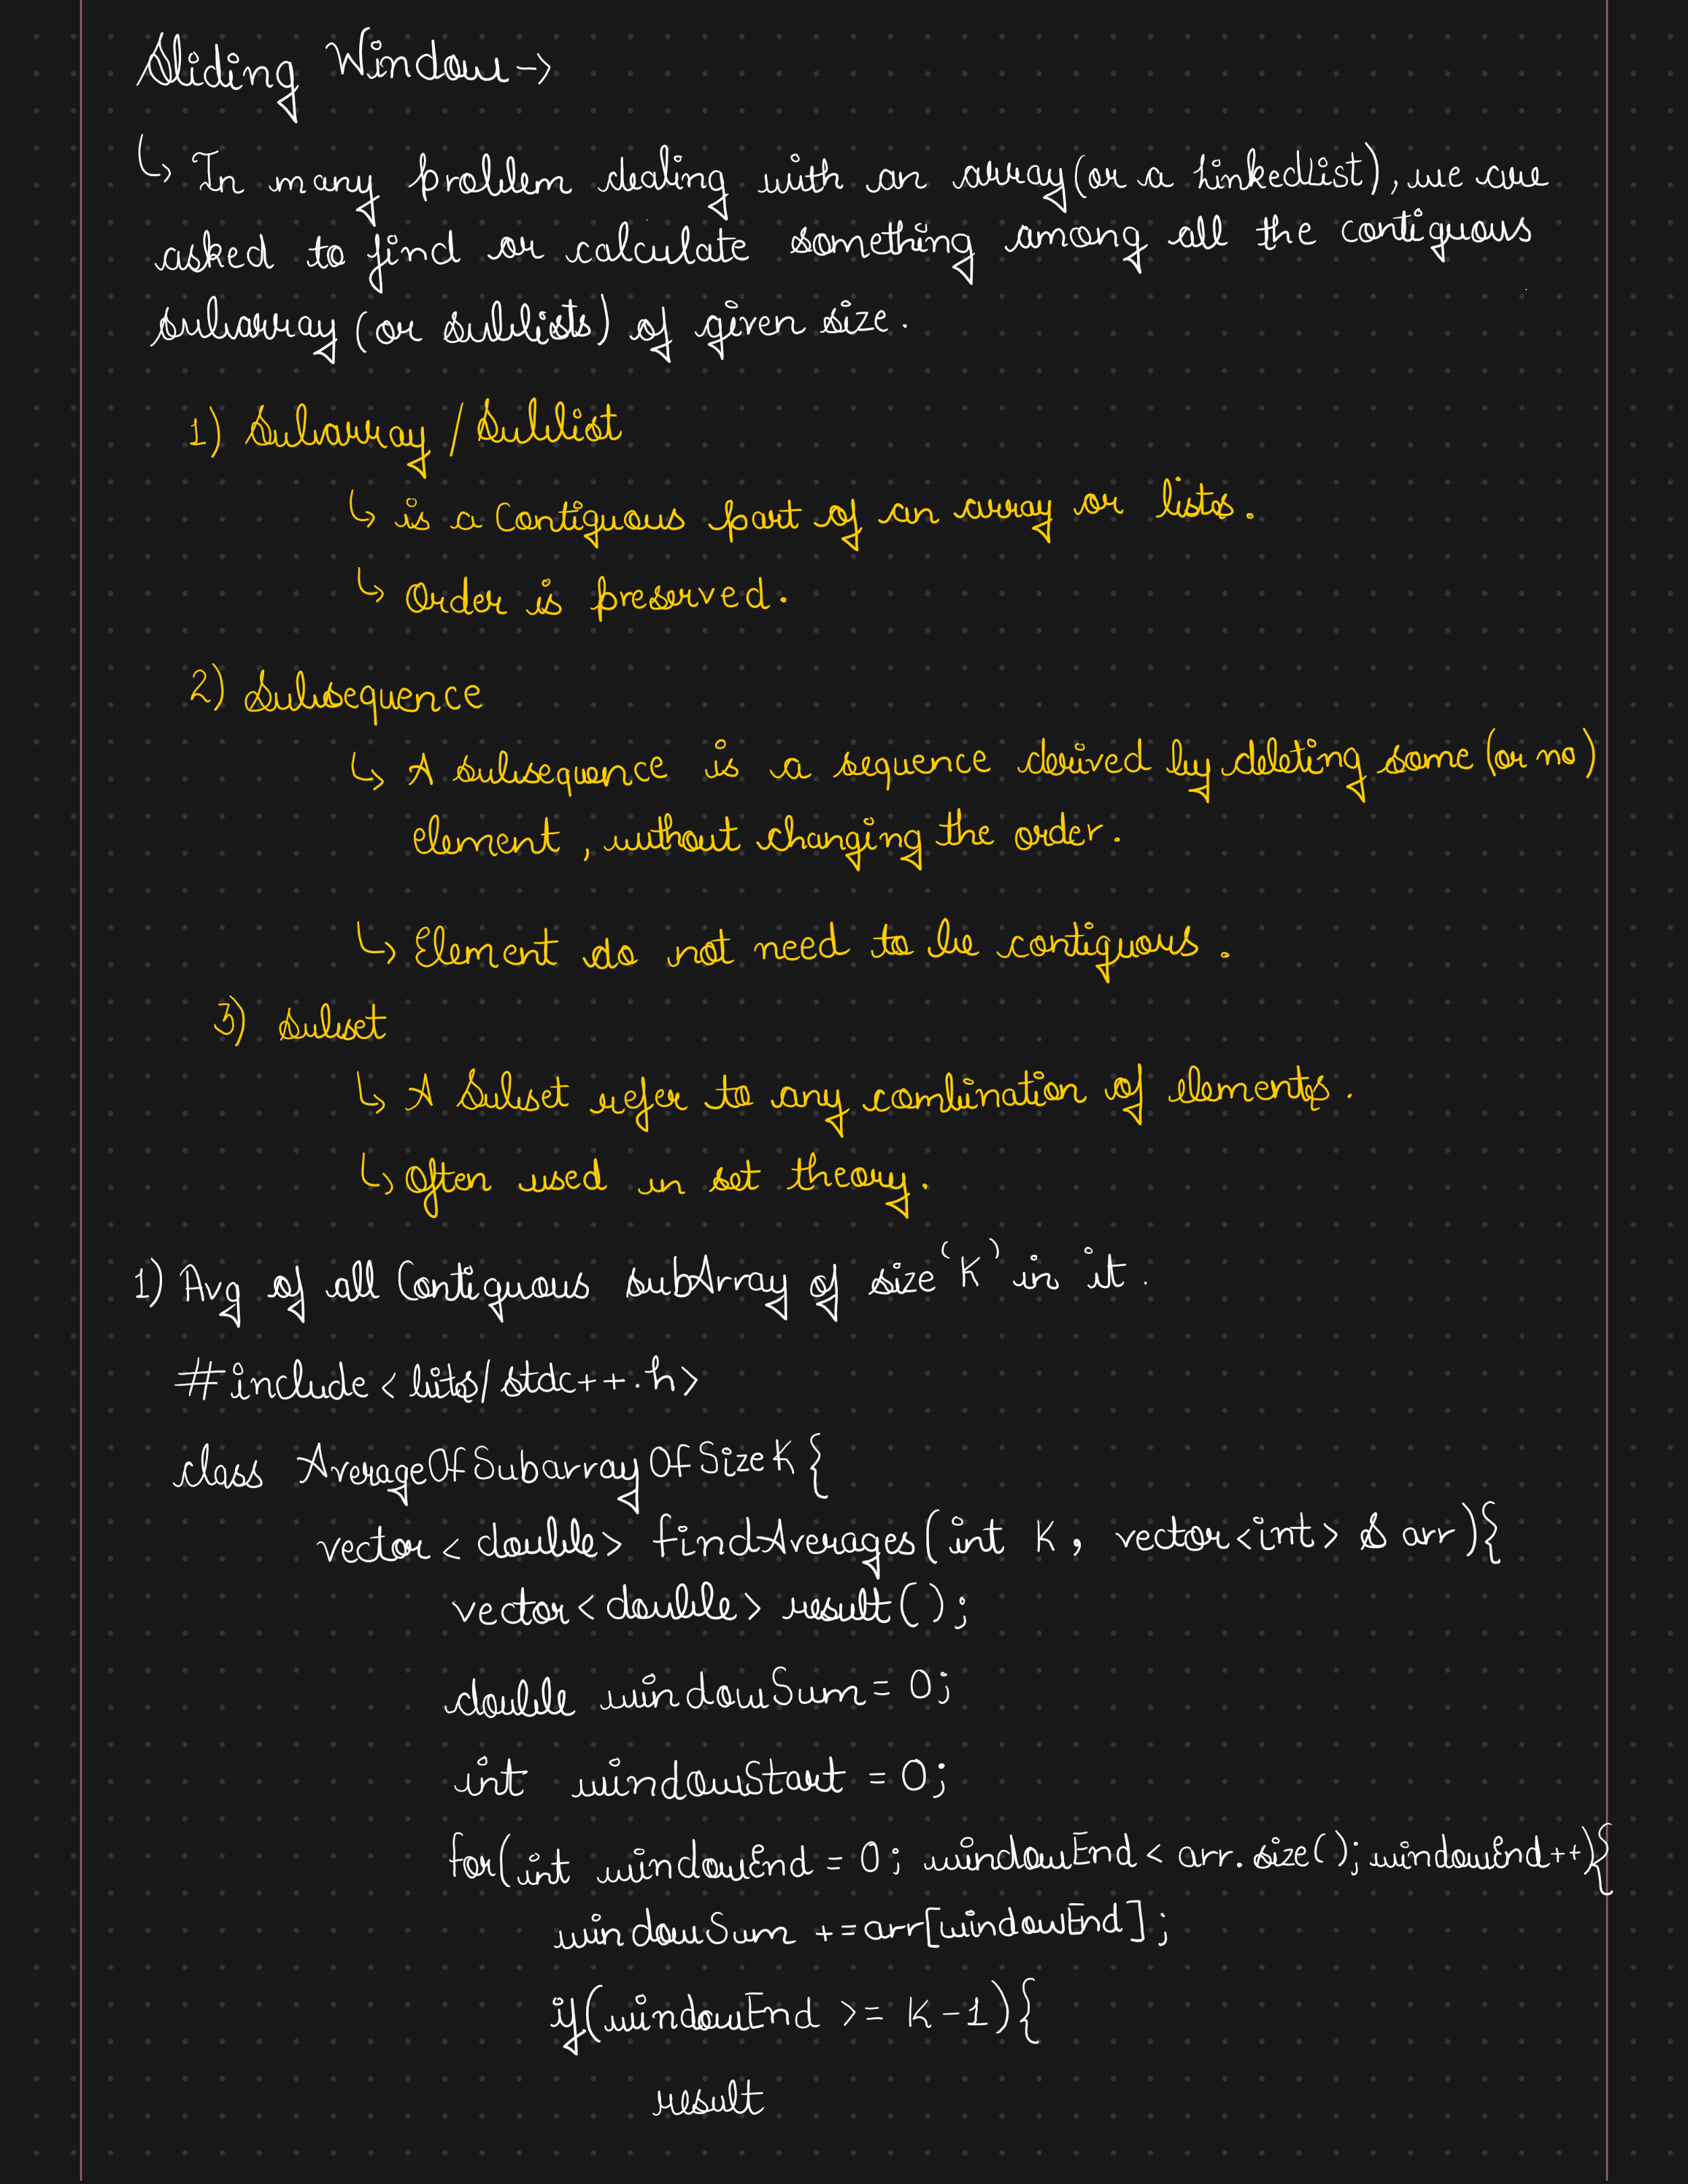 Sliding Window →
↳ In many problem dealing with an array (or a LinkedList), we are
asked to find or calculate something among all the contiguous
subarray (or sublists) of given size.
1) Subarray / Sublist
↳ is a Contiguous part of an array or lists.
↳ Order is preserved.
2) Subsequence
↳ A subsequence is a sequence derived by deleting some (or no)
element, without changing the order.
↳ Element do not need to be contiguous.
3) Subset
↳ A Subset refer to any combination of elements.
↳ Often used in set theory.
1) Avg of all Contiguous subArray of size 'K' in it.
#include <bits/stdc++.h>
class AverageOfSubarrayOfSizeK {
vector<double> findAverages(int K, vector<int> & arr){
vector<double> result();
double windowSum = 0;
int windowStart = 0;
for(int windowEnd = 0; windowEnd < arr.size(); windowEnd++){
windowSum += arr[windowEnd];
if(windowEnd >= K-1){
result